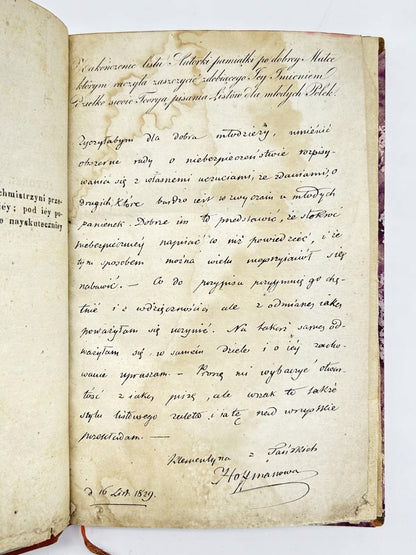 chmiatrzyni prze-
iéy; pod iéy po-
o nayskuteczniey
Zakończenie listu Autorki pamiątki po dobrey Matce
którym raczyła zaszczycić zdobiącego Jey Imieniem
Dziełko swoie Teorya pisania Listów dla młodych Polek.
Życzyłabym dla dobra młodzieży, umieścić
obszerne rady o niebezpieczeństwie rozpisy-
wania się z własnemi uczuciami, ze zdaniami, o
drugich, które bardzo iest w zwyczaiu u młodych
panienek. Dobrze im to przedstawić, że stokroć
niebezpieczniey napisać co niż powiedzieć, i że
tym sposobem można wielu nieprzyiaciół się
nabawić. — Co do przypisu przyymuię go chę-
tnie i z wdzięcznością, ale z odmianą iaką
poważyłam się uczynić. Na takiéy saméy od-
ważyłam się w samém dziele i o iéy zacho-
wanie upraszam. — Proszę mi wybaczyć otwar-
tość z iaką piszę, ale wszak to także
stylu listowego zaletą, i ia tę nad wszystkie
przekładam. —
Klementyna z Tańskich
Hoffmanowa
d. 16 List. 1829.